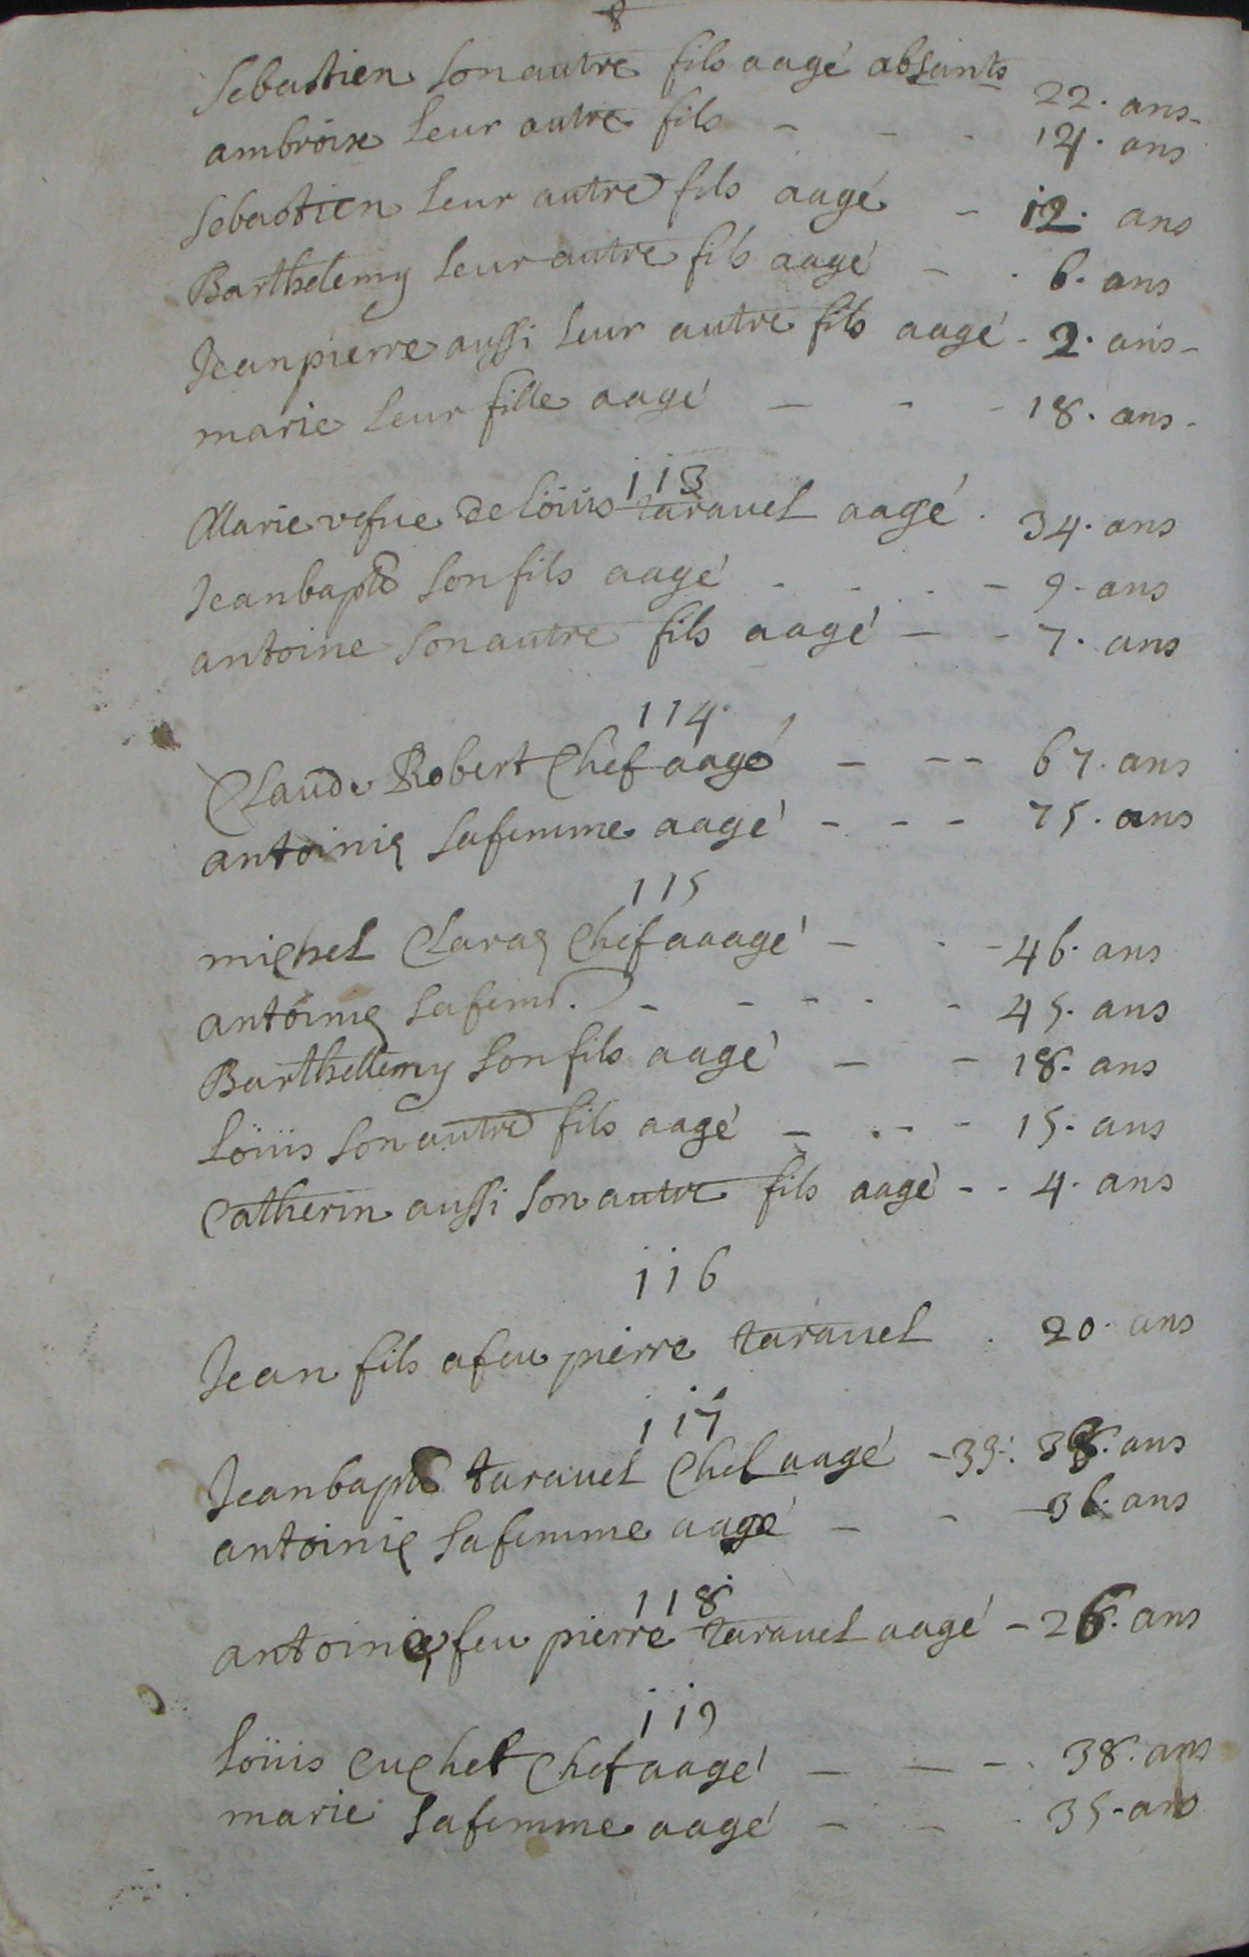 Sebastien son autre fils aagé absants 22. ans
ambroise leur autre fils - - - 14. ans
Sebastien leur autre fils aagé - 12. ans
Barthelemy leur autre fils aagé - - 6. ans
Jeanpierre aussi leur autre fils aagé - 2. ans
marie leur fille aagé - - - 18. ans
113
Marie vefue de Loüis tarauel aagé . 34. ans
Jeanbapte son fils aagé - - - - 9. ans
antoine son autre fils aagé - - 7. ans
114
Claude Robert Chef aagé - - - 67. ans
antoinie sa femme aagé - - - 75. ans
115
michel Claraz Chef aaagé - - - 46. ans
antoinie sa feme. - - - - - 45. ans
Barthellemy son fils aagé - - 18. ans
Loüis son autre fils aagé - - - - 15. ans
Catherin aussi son autre fils aagé - - 4. ans
116
Jean fils a feu pierre tarauel . 20. ans
117
Jeanbapte tarauel Chef aagé - 39: 38. ans
antoinie sa femme aagé - - - 36. ans
118
antoinie feu pierre tarauel aagé - 26. ans
119
Loüis Cuchet Chef aagé - - - . 38. ans
marie sa femme aagé - - - 35. ans